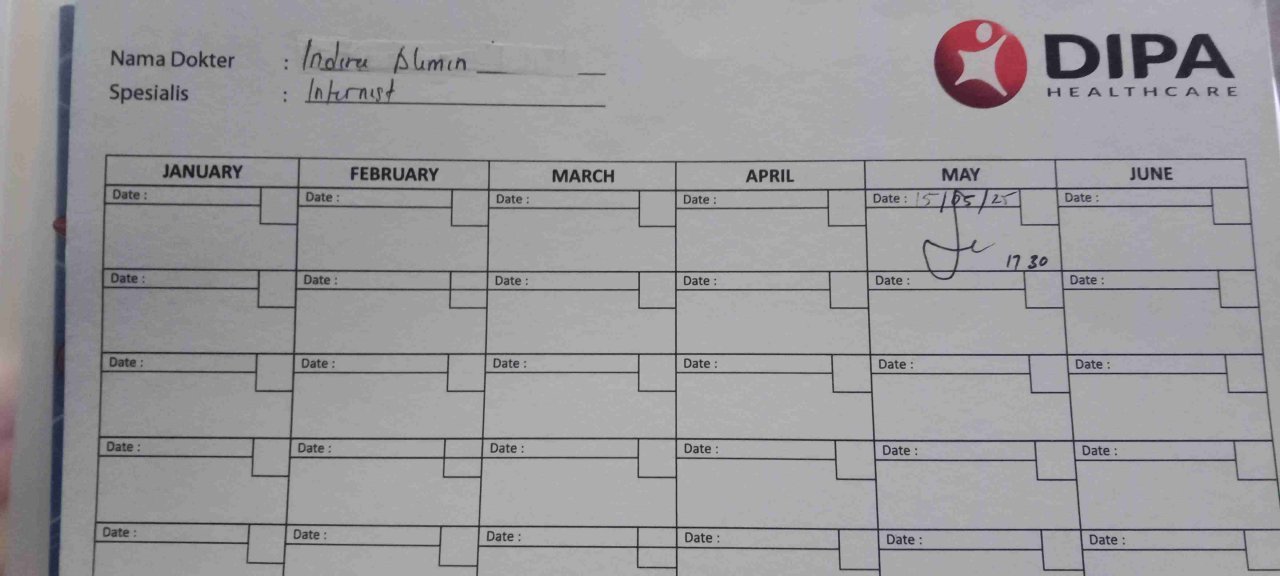 Nama Dokter : Indira Almin
Spesialis : Internist
DIPA
HEALTHCARE
JANUARY FEBRUARY MARCH APRIL MAY JUNE
Date : Date : Date : Date : Date : 15/05/25 Date :
17 30
Date : Date : Date : Date : Date : Date :
Date : Date : Date : Date : Date : Date :
Date : Date : Date : Date : Date : Date :
Date : Date : Date : Date : Date : Date :